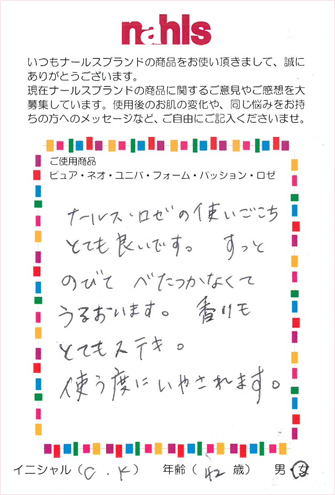 nahls
いつもナールスブランドの商品をお使い頂きまして、誠に
ありがとうございます。
現在ナールスブランドの商品に関するご意見やご感想を大
募集しています。使用後のお肌の変化や、同じ悩みをお持
ちの方へのメッセージなど、ご自由にご記入くださいませ。
ご使用商品
ピュア・ネオ・ユニバ・フォーム・パッション・ロゼ
ナールス・ロゼの使いごこち
とても良いです。 すっと
のびて べたつかなくて
うるおいます。 香りも
とてもステキ。
使う度にいやされます。
イニシャル（C . K） 年齢（42 歳） 男・女